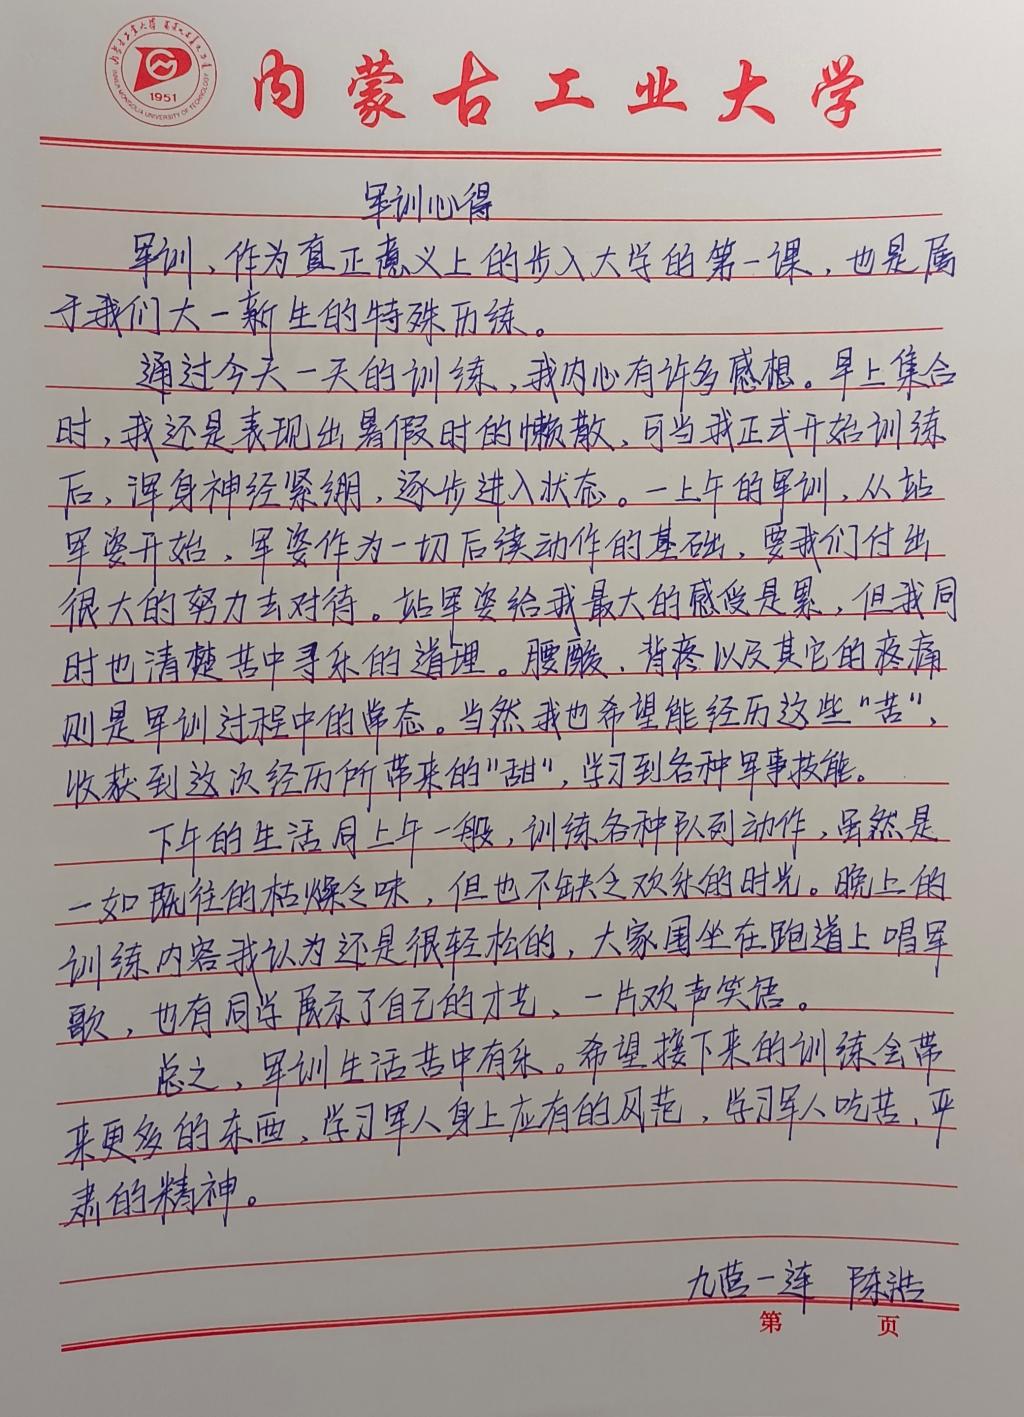 1951
内蒙古工业大学
军训心得
军训、作为真正意义上的步入大学的第一课，也是属
于我们大一新生的特殊历练。
通过今天一天的训练、我内心有许多感想。早上集合
时，我还是表现出暑假时的懒散、可当我正式开始训练
后，浑身神经紧绷，逐步进入状态。一上午的军训，从站
军姿开始，军姿作为一切后续动作的基础、要我们付出
很大的努力去对待。站军姿给我最大的感受是累，但我同
时也清楚苦中寻乐的道理。腰酸、背疼以及其它的疼痛
则是军训过程中的常态。当然我也希望能经历这些“苦”、
收获到这次经历所带来的“甜”，学习到各种军事技能。
下午的生活同上午一般，训练各种队列动作，虽然是
一如既往的枯燥乏味，但也不缺乏欢乐的时光。晚上的
训练内容我认为还是很轻松的，大家围坐在跑道上唱军
歌，也有同学展示了自己的才艺、一片欢声笑语。
总之，军训生活苦中有乐。希望接下来的训练会带
来更多的东西、学习军人身上应有的风范，学习军人吃苦、严
肃的精神。
九营一连 陈浩
第 页